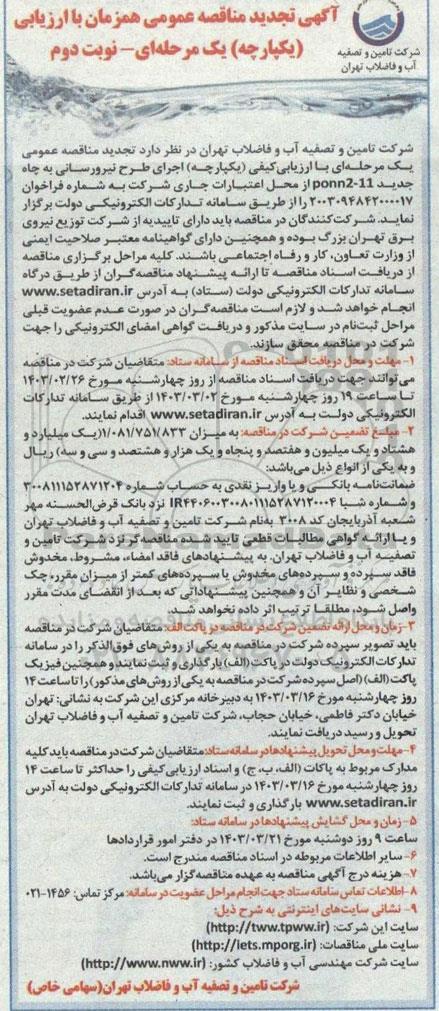 آگهی تجدید مناقصه عمومی همزمان با ارزیابی
(یکپارچه) یک مرحله‌ای- نوبت دوم
شرکت تامین و تصفیه
آب و فاضلاب تهران
شرکت تامین و تصفیه آب و فاضلاب تهران در نظر دارد تجدید مناقصه عمومی
یک مرحله‌ای با ارزیابی‌کیفی (یکپارچه) اجرای طرح نیرورسانی به چاه
جدید ponn2-11 از محل اعتبارات جاری شرکت به شماره فراخوان
۲۰۰۳۰۹۴۸۴۲۰۰۰۰۱۷ را از طریق سامانه تدارکات الکترونیکی دولت برگزار
نماید. شرکت‌کنندگان در مناقصه باید دارای تاییدیه از شرکت توزیع نیروی
برق تهران بزرگ بوده و همچنین دارای گواهینامه معتبر صلاحیت ایمنی
از وزارت تعاون، کار و رفاه اجتماعی باشند. کلیه مراحل برگزاری مناقصه
از دریافت اسناد مناقصه تا ارائه پیشنهاد مناقصه‌گران از طریق درگاه
سامانه تدارکات الکترونیکی دولت (ستاد) به آدرس www.setadiran.ir
انجام خواهد شد و لازم است مناقصه‌گران در صورت عدم عضویت قبلی
مراحل ثبت‌نام در سایت مذکور و دریافت گواهی امضای الکترونیکی را جهت
شرکت در مناقصه محقق سازند.
۱- مهلت و محل دریافت اسناد مناقصه از سامانه ستاد: متقاضیان شرکت در مناقصه
می‌توانند جهت دریافت اسناد مناقصه از روز چهارشنبه مورخ ۱۴۰۳/۰۲/۲۶
تا ساعت ۱۹ روز چهارشنبه مورخ ۱۴۰۳/۰۳/۰۲ از طریق سامانه تدارکات
الکترونیکی دولت به آدرس www.setadiran.ir اقدام نمایند.
۲- مبلغ تضمین شرکت در مناقصه: به میزان ۱/۰۸۱/۷۵۱/۸۳۳(یک میلیارد و
هشتاد و یک میلیون و هفتصد و پنجاه و یک هزار و هشتصد و سی و سه) ریال
و به یکی از انواع ذیل می‌باشد:
ضمانت‌نامه بانکی و یا واریز نقدی به حساب شماره ۳۰۰۸۱۱۱۵۲۸۷۱۲۰۴
و شماره شبا IR۴۴۰۶۰۰۳۰۰۸۰۱۱۱۵۲۸۷۱۲۰۰۰۴ نزد بانک قرض‌الحسنه مهر
شعبه آذربایجان کد ۳۰۰۸ به‌نام شرکت تامین و تصفیه آب و فاضلاب تهران
و یا ارائه گواهی مطالبات قطعی تایید شده مناقصه‌گر نزد شرکت تامین و
تصفیه آب و فاضلاب تهران. به پیشنهادهای فاقد امضاء، مشروط، مخدوش
فاقد سپرده و سپرده‌های مخدوش یا سپرده‌های کمتر از میزان مقرر، چک
شخصی و نظایر آن و همچنین پیشنهاداتی که بعد از انقضای مدت مقرر
واصل شود، مطلقا ترتیب اثر داده نخواهد شد.
۳-زمان و محل ارائه تضمین شرکت در مناقصه در پاکت الف: متقاضیان شرکت در مناقصه
باید تصویر سپرده شرکت در مناقصه به یکی از روش‌های فوق‌الذکر را در سامانه
تدارکات الکترونیک دولت در پاکت (الف) بارگذاری و ثبت نمایند و همچنین فیزیک
پاکت (الف) (اصل سپرده شرکت در مناقصه به یکی از روش‌های مذکور) را تا ساعت ۱۴
روز چهارشنبه مورخ ۱۴۰۳/۰۳/۱۶ به دبیرخانه مرکزی این شرکت به نشانی: تهران
خیابان دکتر فاطمی، خیابان حجاب، شرکت تامین و تصفیه آب و فاضلاب تهران
تحویل و رسید دریافت نمایند.
۴- مهلت و محل تحویل پیشنهادها در سامانه ستاد: متقاضیان شرکت در مناقصه باید کلیه
مدارک مربوط به پاکات (الف، ب، ج) و اسناد ارزیابی‌کیفی را حداکثر تا ساعت ۱۴
روز چهارشنبه مورخ ۱۴۰۳/۰۳/۱۶ در سامانه تدارکات الکترونیکی دولت به آدرس
www.setadiran.ir بارگذاری و ثبت نمایند.
۵-زمان و محل گشایش پیشنهادها در سامانه ستاد:
ساعت ۹ روز دوشنبه مورخ ۱۴۰۳/۰۳/۲۱ در دفتر امور قراردادها
۶- سایر اطلاعات مربوطه در اسناد مناقصه مندرج است.
۷- هزینه درج آگهی مناقصه به عهده مناقصه‌گزار می‌باشد.
۸-اطلاعات تماس سامانه ستاد جهت انجام مراحل عضویت در سامانه: مرکز تماس: ۱۴۵۶-۰۲۱
۹- نشانی سایت‌های اینترنتی به شرح ذیل:
سایت این شرکت: (http://tww.tpww.ir)
سایت ملی مناقصات: (http://iets.mporg.ir)
سایت شرکت مهندسی آب و فاضلاب کشور: (http://www.nww.ir)
شرکت تامین و تصفیه آب و فاضلاب تهران(سهامی خاص)